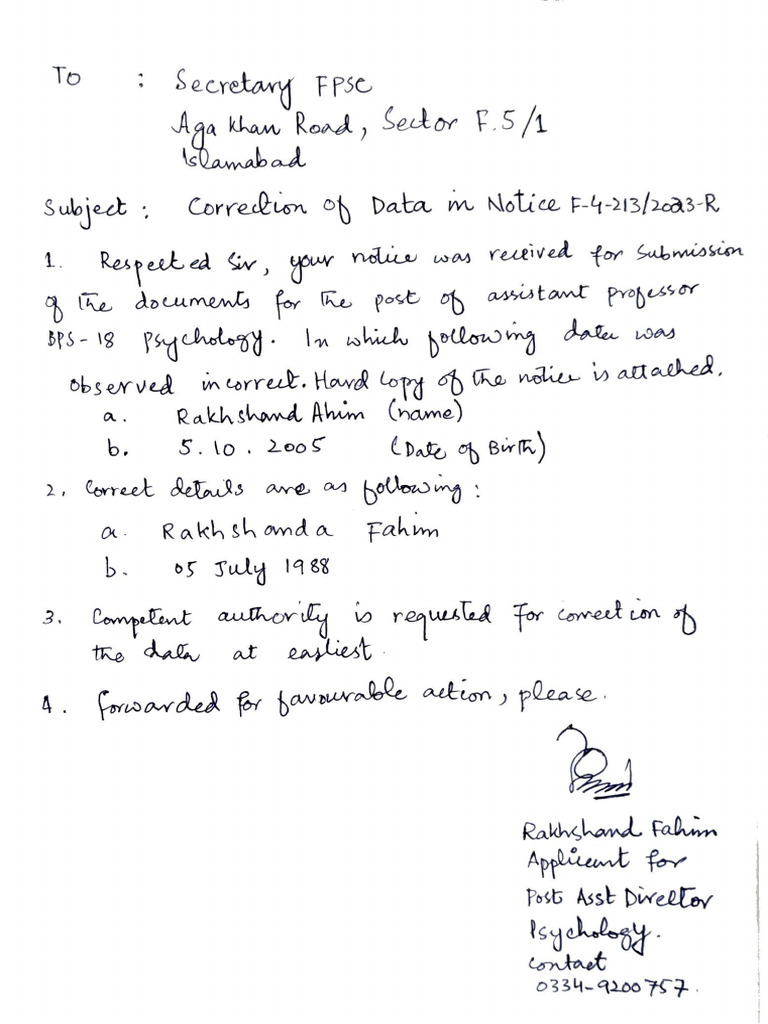 To : Secretary FPSC
Aga Khan Road, Sector F.5/1
Islamabad
Subject : Correction of Data in Notice F-4-213/2023-R
1. Respected Sir, your notice was received for submission
of the documents for the post of assistant professor
BPS-18 Psychology. In which following data was
observed incorrect. Hard copy of the notice is attached.
a. Rakhshand Ahim (name)
b. 5.10.2005 (Date of Birth)
2. Correct details are as following :
a. Rakhshanda Fahim
b. 05 July 1988
3. Competent authority is requested for correction of
the data at easliest.
4. Forwarded for favourable action, please.
Rakhshand Fahim
Applicant for
Post Asst Director
Psychology.
Contact
0334-9200757.